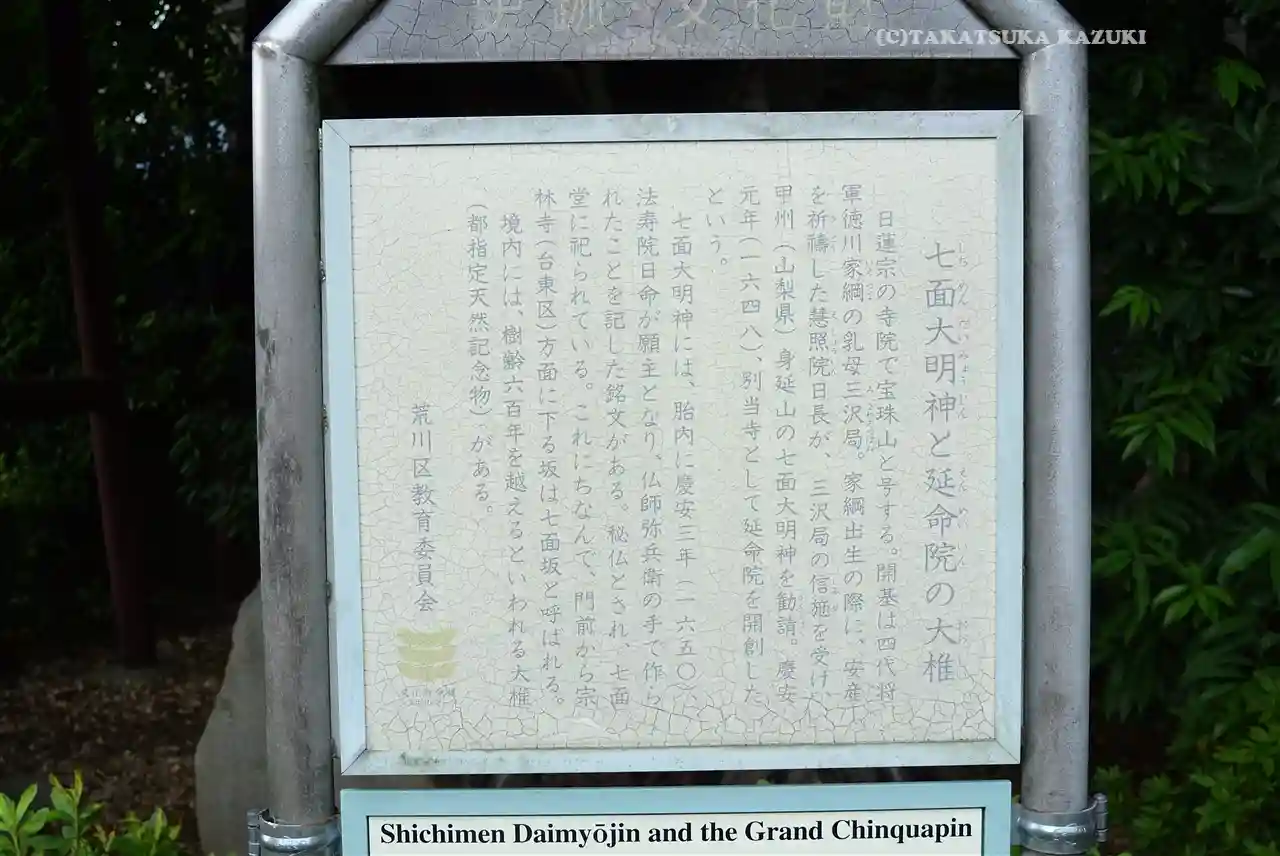 史跡・文化財
(C)TAKATSUKA KAZUKI
七面大明神と延命院の大椎
日蓮宗の寺院で宝珠山と号する。開基は四代将
軍徳川家綱の乳母三沢局。家綱出生の際に、安産
を祈禱した慧照院日長が、三沢局の信施を受け、
甲州（山梨県）身延山の七面大明神を勧請。慶安
元年（一六四八）、別当寺として延命院を開創した
という。
七面大明神には、胎内に慶安三年（一六五〇）、
法寿院日命が願主となり、仏師弥兵衛の手で作ら
れたことを記した銘文がある。秘仏とされ、七面
堂に祀られている。これにちなんで、門前から宗
林寺（台東区）方面に下る坂は七面坂と呼ばれる。
境内には、樹齢六百年を越えるといわれる大椎
（都指定天然記念物）がある。
荒川区教育委員会
Shichimen Daimyōjin and the Grand Chinquapin